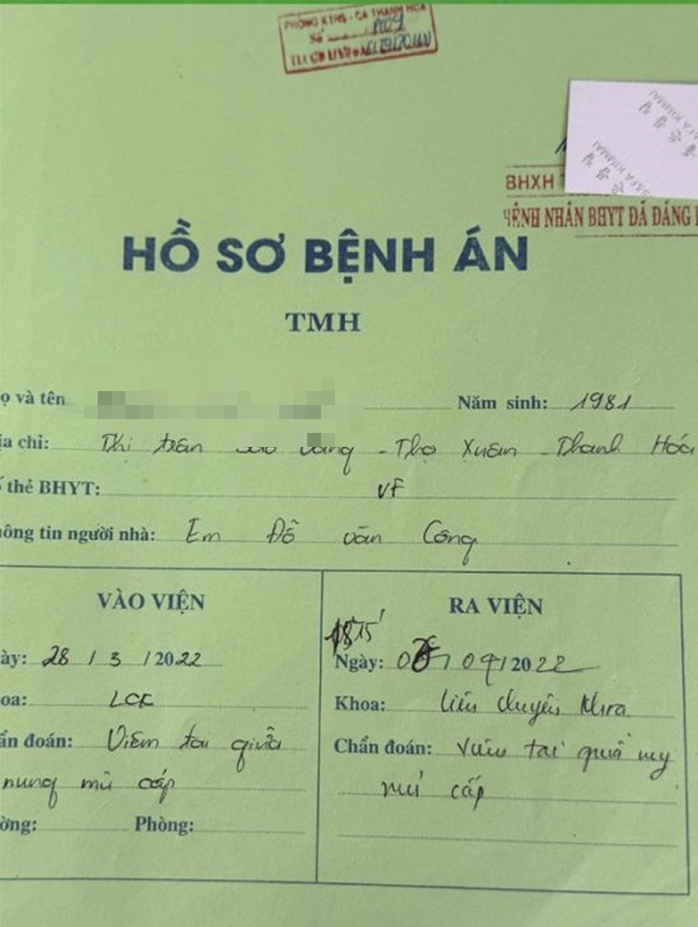 PHÒNG KTHS - CA THANH HÓA
Số
BHXH
BỆNH NHÂN BHYT ĐÃ ĐĂNG
HỒ SƠ BỆNH ÁN
TMH
ọ và tên Năm sinh: 1981
ịa chỉ: Thị trấn - Thọ Xuân - Thanh Hóa
ố thẻ BHYT: VF
ông tin người nhà: Em Đỗ văn Công
VÀO VIỆN
ày: 28 / 3 / 2022
oa: LCK
ẩn đoán: Viêm tai giữa
nung mủ cấp
ường: Phòng:
RA VIỆN
Ngày: / 04 / 2022
Khoa: liên chuyên khoa
Chẩn đoán: viêm tai giữa
mủ cấp